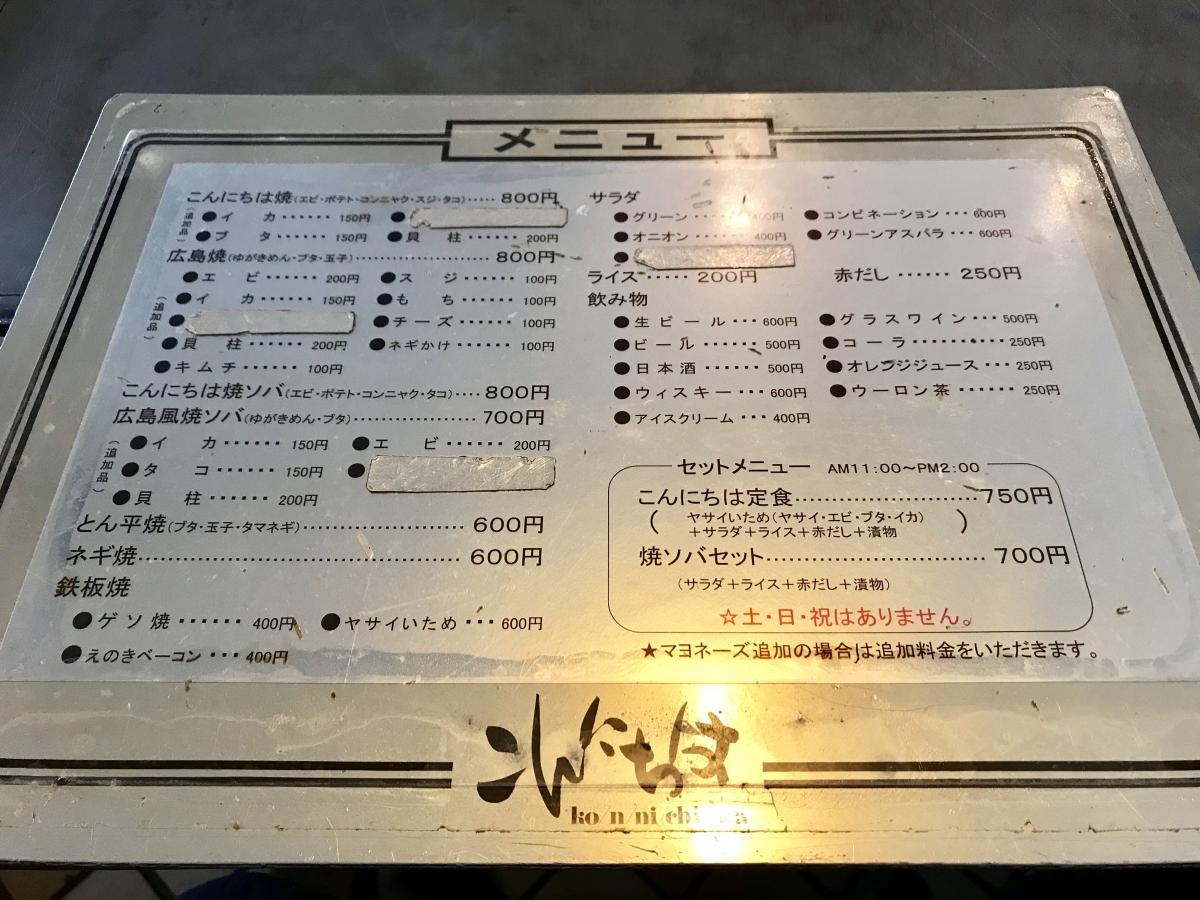 メニュー
こんにちは焼(エビ・ポテト・コンニャク・スジ・タコ)····· 800円
(追加品)
●イ カ······ 150円 ●
●ブ タ······ 150円 ●貝 柱······ 200円
広島焼(ゆがきめん・ブタ・玉子)···················· 800円
●エ ビ······ 200円 ●ス ジ······ 100円
(追加品)
●イ カ······ 150円 ●も ち······ 100円
● ●チーズ······ 100円
●貝 柱······ 200円 ●ネギかけ······ 100円
●キムチ······ 100円
こんにちは焼ソバ(エビ・ポテト・コンニャク・タコ)···· 800円
広島風焼ソバ(ゆがきめん・ブタ)···················· 700円
(追加品)
●イ カ······ 150円 ●エ ビ······ 200円
●タ コ······ 150円 ●
●貝 柱······ 200円
とん平焼(ブタ・玉子・タマネギ)························ 600円
ネギ焼················································ 600円
鉄板焼
●ゲソ焼······ 400円 ●ヤサイいため··· 600円
●えのきベーコン··· 400円
サラダ
●グリーン ···· 400円 ●コンビネーション··· 600円
●オニオン ···· 400円 ●グリーンアスパラ··· 600円
●
ライス······ 200円 赤だし······ 250円
飲み物
●生ビール··· 600円 ●グラスワイン··· 500円
●ビール······ 500円 ●コーラ·········· 250円
●日本酒······ 500円 ●オレンジジュース··· 250円
●ウィスキー··· 600円 ●ウーロン茶······ 250円
●アイスクリーム··· 400円
セットメニュー AM11:00~PM2:00
こんにちは定食························750円
(ヤサイいため(ヤサイ・エビ・ブタ・イカ)
+サラダ+ライス+赤だし+漬物)
焼ソバセット···························· 700円
(サラダ+ライス+赤だし+漬物)
☆土・日・祝はありません。
★マヨネーズ追加の場合は追加料金をいただきます。
こんにちは
ko/n/ni/chi